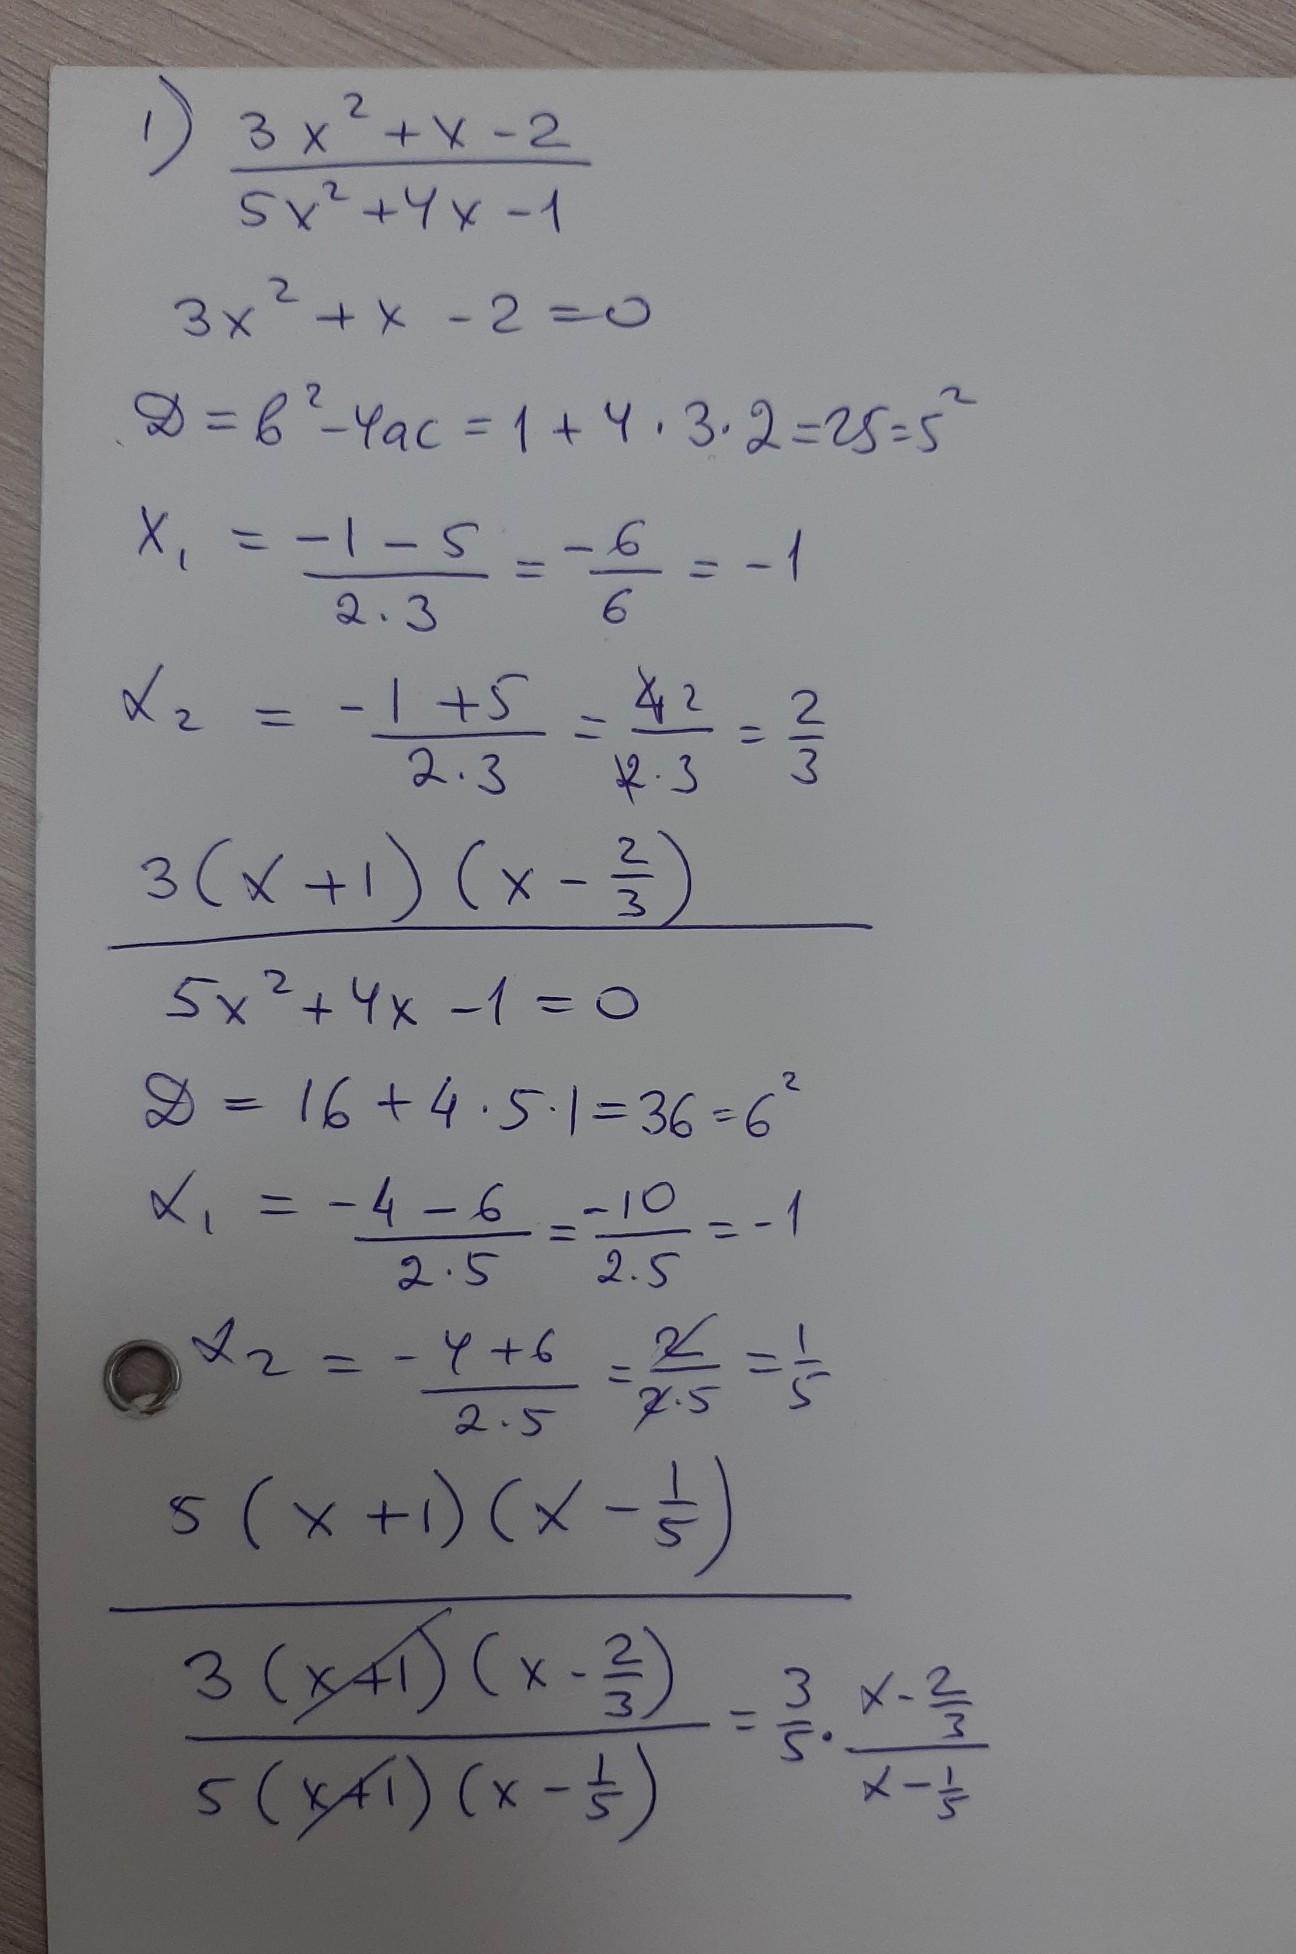 1) (3x² + x - 2)/(5x² + 4x - 1)
3x² + x - 2 = 0
D = b² - 4ac = 1 + 4 · 3 · 2 = 25 = 5²
x₁ = (-1 - 5)/(2 · 3) = -6/6 = -1
x₂ = (-1 + 5)/(2 · 3) = 4 2/(2 · 3) = 2/3
3(x + 1)(x - 2/3)
5x² + 4x - 1 = 0
D = 16 + 4 · 5 · 1 = 36 = 6²
x₁ = (-4 - 6)/(2 · 5) = -10/(2 · 5) = -1
x₂ = (-4 + 6)/(2 · 5) = 2/(2 · 5) = 1/5
5(x + 1)(x - 1/5)
3(x+1)(x - 2/3)/5(x+1)(x - 1/5) = 3/5 · (x - 2/3)/(x - 1/5)